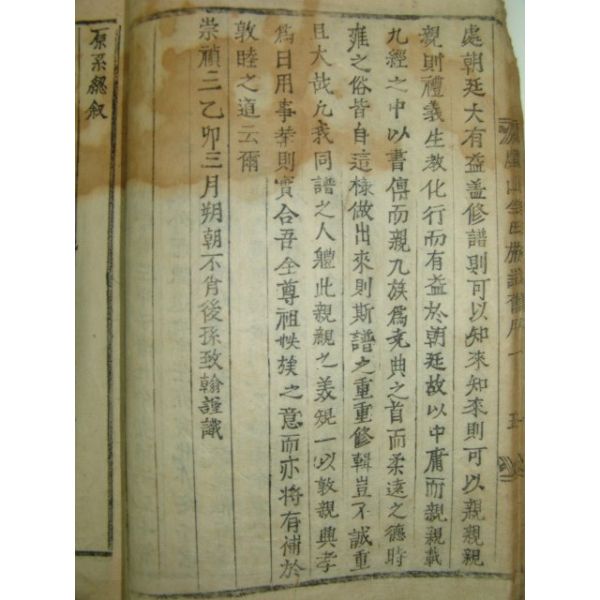 處朝廷大有益蓋修譜則可以知來知來則可以親親親
親則禮義生敎化行而有益於朝廷故以中庸而親親載
九經之中以書傳而親九族爲堯典之首而柔遠之德時
雍之俗皆自這樣做出來則斯譜之重重修輯豈不誠重
且大哉凡我同譜之人軆此親親之美規一以敦親興孝
爲日用事業則實合吾全尊祖收族之意而亦將有補於
敦睦之道云爾
崇禎三乙卯三月朔朝不肖後孫致翰謹識
源系總叙